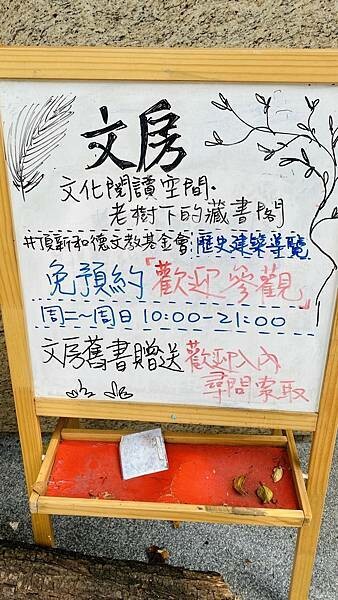 文房
文化閱讀空間·
老樹下的藏書閣
#頂新和德文教基金會:歷史建築導覽
免預約「歡迎參觀」
週二～周日10:00-21:00
文房舊書贈送 歡迎入內
尋問索取